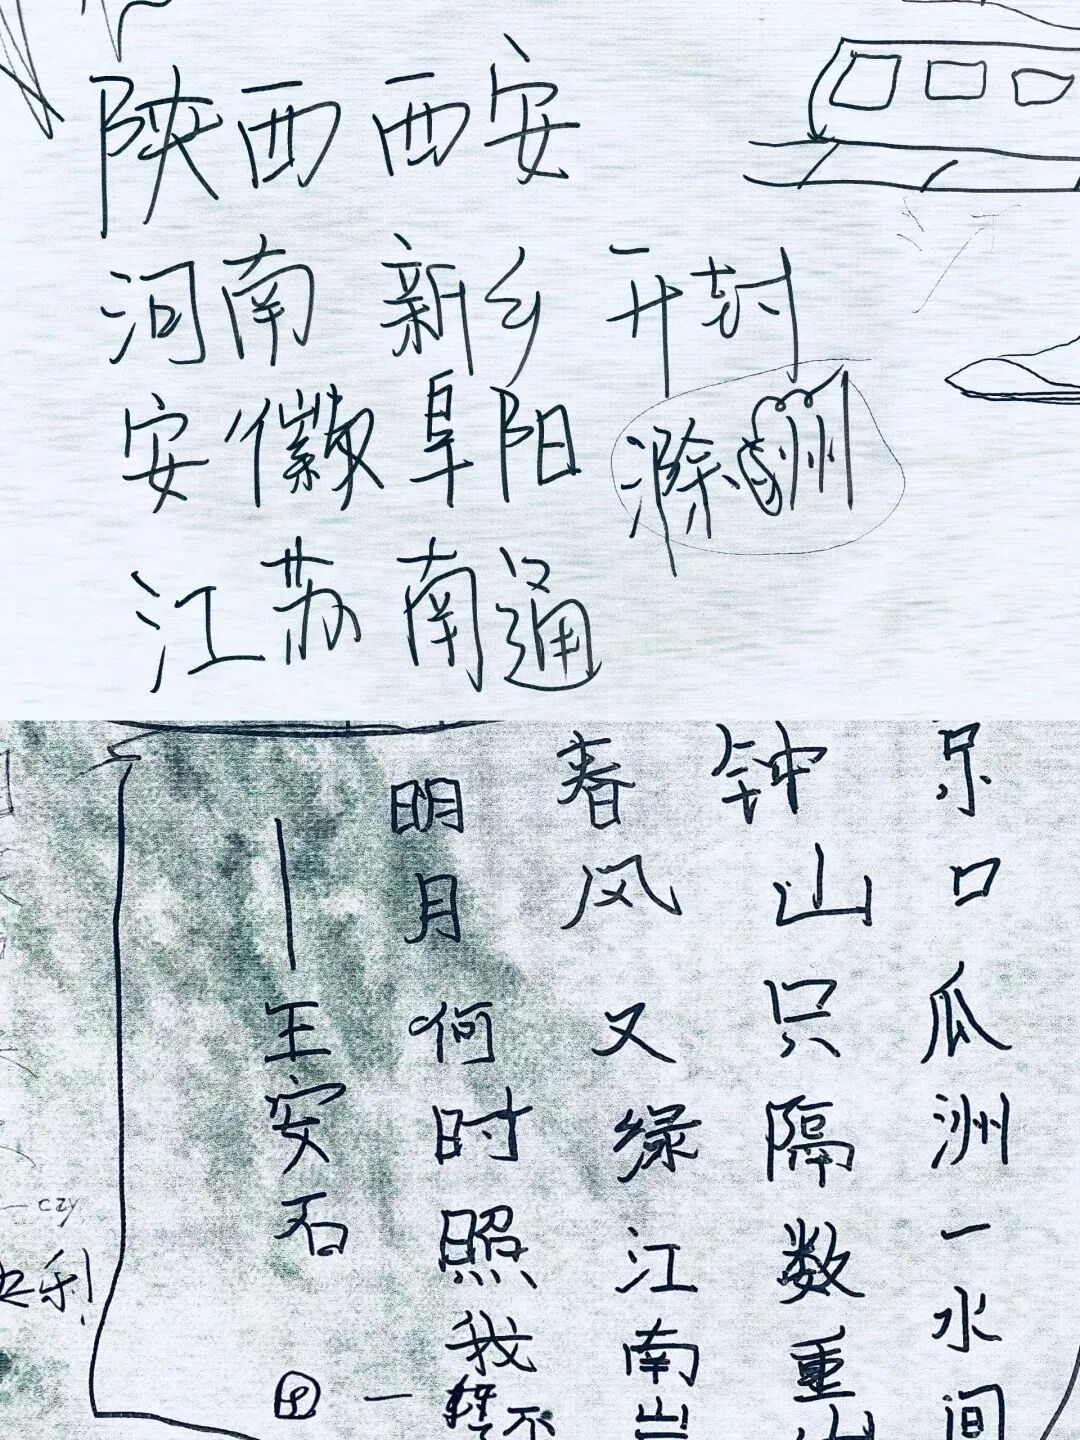 陕西西安
河南 新乡 开封
安徽阜阳 滁洲
江苏南通
京口瓜洲一水间
钟山只隔数重山
春风又绿江南岸
明月何时照我
——王安石
czy
利!